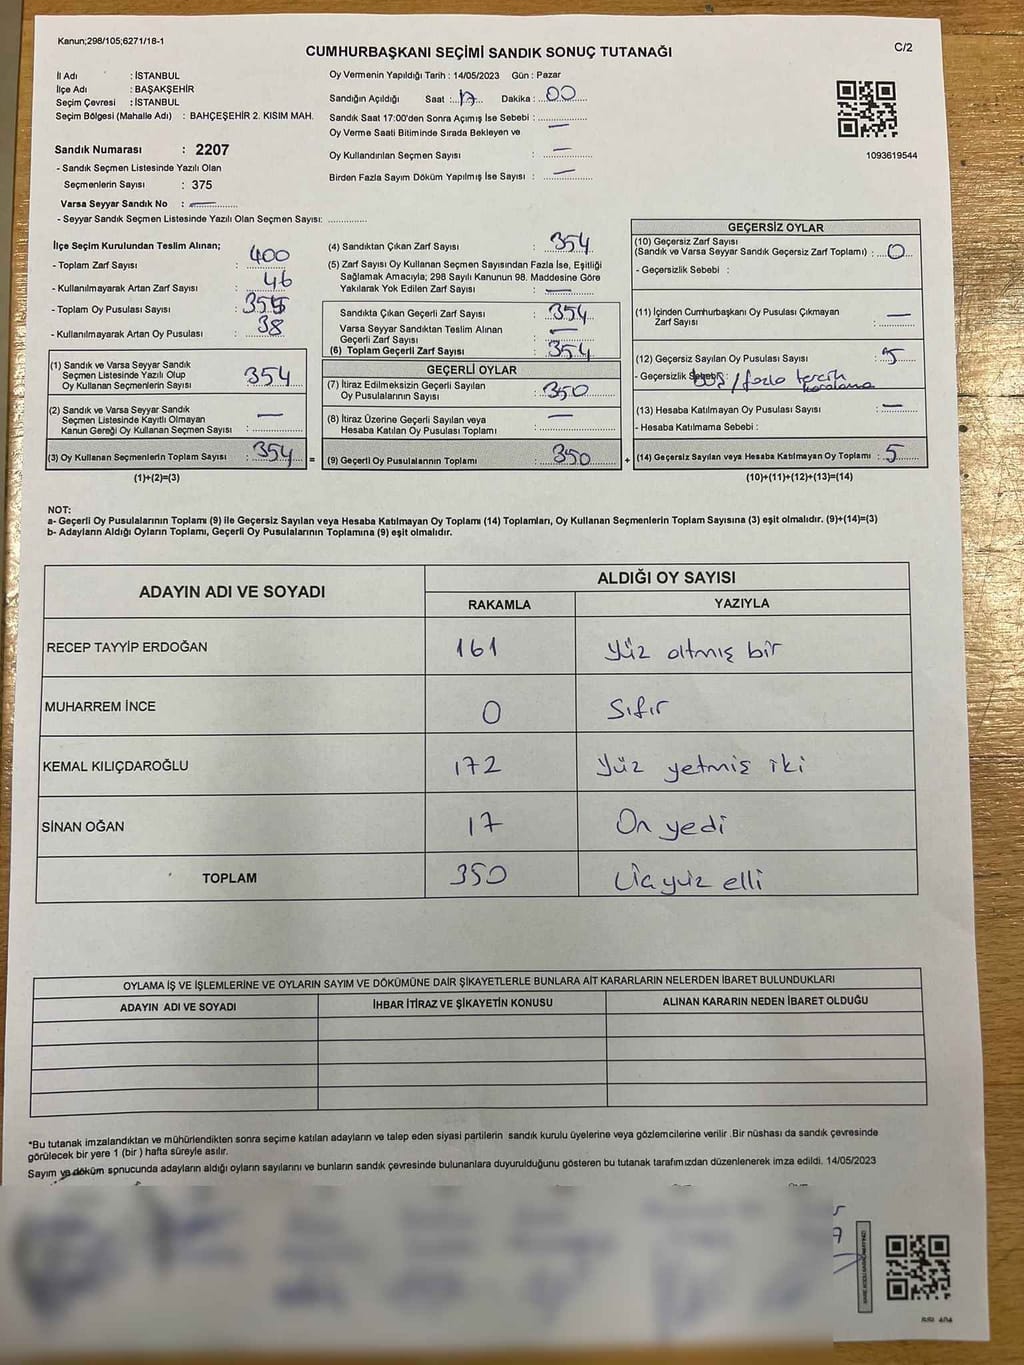 Kanun;298/105;6271/18-1
CUMHURBAŞKANI SEÇİMİ SANDIK SONUÇ TUTANAĞI
C/2
İl Adı : İSTANBUL
İlçe Adı : BAŞAKŞEHİR
Seçim Çevresi : İSTANBUL
Seçim Bölgesi (Mahalle Adı) : BAHÇEŞEHİR 2. KISIM MAH.
Sandık Numarası : 2207
- Sandık Seçmen Listesinde Yazılı Olan
Seçmenlerin Sayısı : 375
Varsa Seyyar Sandık No : —
- Seyyar Sandık Seçmen Listesinde Yazılı Olan Seçmen Sayısı: ..............
Oy Vermenin Yapıldığı Tarih : 14/05/2023 Gün : Pazar
Sandığın Açıldığı Saat : 17 Dakika : 00
Sandık Saat 17:00'den Sonra Açımış İse Sebebi : ..............
Oy Verme Saati Bitiminde Sırada Bekleyen ve —
Oy Kullandırılan Seçmen Sayısı : —
Birden Fazla Sayım Döküm Yapılmış İse Sayısı : —
1093619544
İlçe Seçim Kurulundan Teslim Alınan;
- Toplam Zarf Sayısı : 400
- Kullanılmayarak Artan Zarf Sayısı : 46
- Toplam Oy Pusulası Sayısı :
- Kullanılmayarak Artan Oy Pusulası : 38
(1) Sandık ve Varsa Seyyar Sandık
Seçmen Listesinde Yazılı Olup
Oy Kullanan Seçmenlerin Sayısı 354
(2) Sandık ve Varsa Seyyar Sandık
Seçmen Listesinde Kayıtlı Olmayan
Kanun Gereği Oy Kullanan Seçmen Sayısı : —
(3) Oy Kullanan Seçmenlerin Toplam Sayısı : 354
(1)+(2)=(3)
(4) Sandıktan Çıkan Zarf Sayısı : 354
(5) Zarf Sayısı Oy Kullanan Seçmen Sayısından Fazla İse, Eşitliği
Sağlamak Amacıyla; 298 Sayılı Kanunun 98. Maddesine Göre
Yakılarak Yok Edilen Zarf Sayısı : —
Sandıkta Çıkan Geçerli Zarf Sayısı : 354
Varsa Seyyar Sandıktan Teslim Alınan
Geçerli Zarf Sayısı : —
(6) Toplam Geçerli Zarf Sayısı : 354
GEÇERLİ OYLAR
(7) İtiraz Edilmeksizin Geçerli Sayılan
Oy Pusulalarının Sayısı : 350
(8) İtiraz Üzerine Geçerli Sayılan veya
Hesaba Katılan Oy Pusulası Toplamı : —
= (9) Geçerli Oy Pusulalarının Toplamı : 350 +
GEÇERSİZ OYLAR
(10) Geçersiz Zarf Sayısı
(Sandık ve Varsa Seyyar Sandık Geçersiz Zarf Toplamı) : 0
- Geçersizlik Sebebi :
(11) İçinden Cumhurbaşkanı Oy Pusulası Çıkmayan
Zarf Sayısı : —
(12) Geçersiz Sayılan Oy Pusulası Sayısı : 5
- Geçersizlik Sebebi : boş / fazla tercih
karalama
(13) Hesaba Katılmayan Oy Pusulası Sayısı : —
- Hesaba Katılmama Sebebi :
(14) Geçersiz Sayılan veya Hesaba Katılmayan Oy Toplamı : 5
(10)+(11)+(12)+(13)=(14)
NOT:
a- Geçerli Oy Pusulalarının Toplamı (9) ile Geçersiz Sayılan veya Hesaba Katılmayan Oy Toplamı (14) Toplamları, Oy Kullanan Seçmenlerin Toplam Sayısına (3) eşit olmalıdır. (9)+(14)=(3)
b- Adayların Aldığı Oyların Toplamı, Geçerli Oy Pusulalarının Toplamına (9) eşit olmalıdır.
ADAYIN ADI VE SOYADI
ALDIĞI OY SAYISI
RAKAMLA YAZIYLA
RECEP TAYYİP ERDOĞAN 161 Yüz altmış bir
MUHARREM İNCE 0 Sıfır
KEMAL KILIÇDAROĞLU 172 Yüz yetmiş iki
SİNAN OĞAN 17 On yedi
TOPLAM 350 Üçyüz elli
OYLAMA İŞ VE İŞLEMLERİNE VE OYLARIN SAYIM VE DÖKÜMÜNE DAİR ŞİKAYETLERLE BUNLARA AİT KARARLARIN NELERDEN İBARET BULUNDUKLARI
ADAYIN ADI VE SOYADI İHBAR İTİRAZ VE ŞİKAYETİN KONUSU ALINAN KARARIN NEDEN İBARET OLDUĞU
*Bu tutanak imzalandıktan ve mühürlendikten sonra seçime katılan adayların ve talep eden siyasi partilerin sandık kurulu üyelerine veya gözlemcilerine verilir .Bir nüshası da sandık çevresinde
görülecek bir yere 1 (bir ) hafta süreyle asılır.
Sayım ve döküm sonucunda adayların aldığı oyların sayılarını ve bunların sandık çevresinde bulunanlara duyurulduğunu gösteren bu tutanak tarafımızdan düzenlenerek imza edildi. 14/05/2023